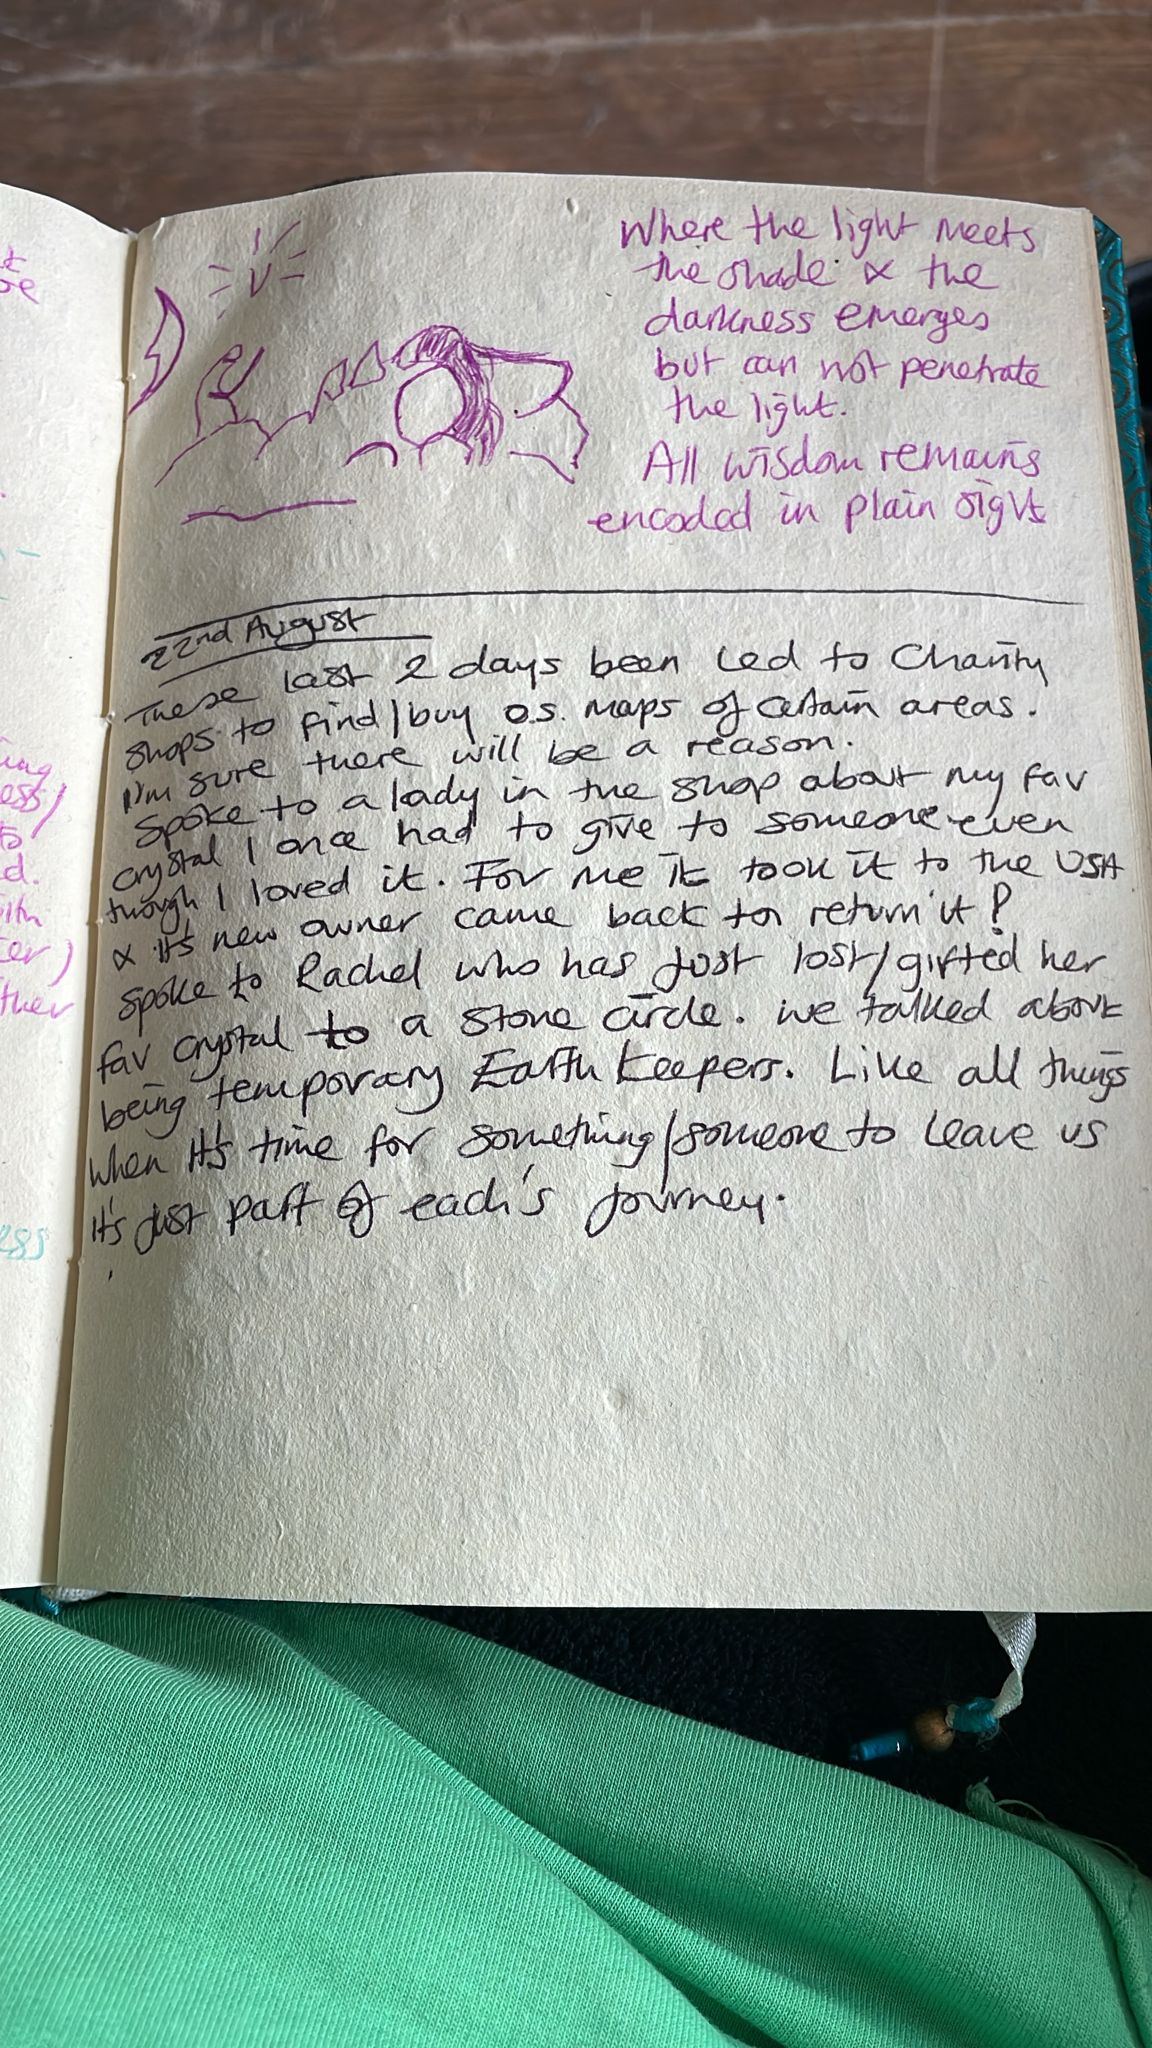 Where the light meets
the shade & the
darkness emerges
but can not penetrate
the light.
All wisdom remains
encoded in plain sight
22nd August
These last 2 days been led to Charity
shops to find/buy o.s. maps of certain areas.
I'm sure there will be a reason.
Spoke to a lady in the shop about my fav
crystal I once had to give to someone even
though I loved it. For me it took it to the USA
& it's new owner came back to return it?
Spoke to Rachel who has just lost/gifted her
fav crystal to a stone circle. we talked about
being temporary Earth Keepers. Like all things
when it's time for something/someone to leave us
it's just part of each's journey.